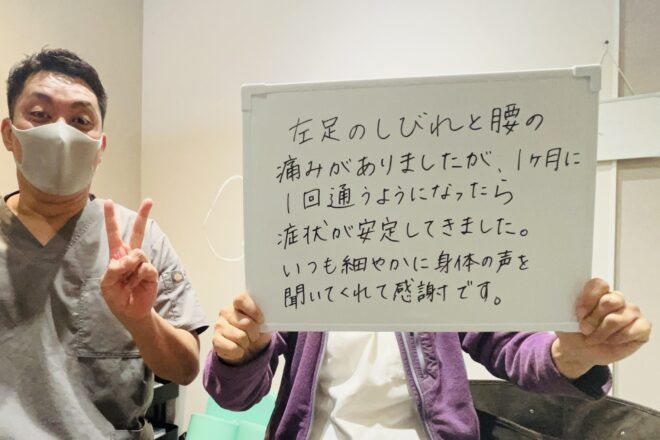 左足のしびれと腰の
痛みがありましたが、1ヶ月に
1回通うようになったら
症状が安定してきました。
いつも細やかに身体の声を
聞いてくれて感謝です。